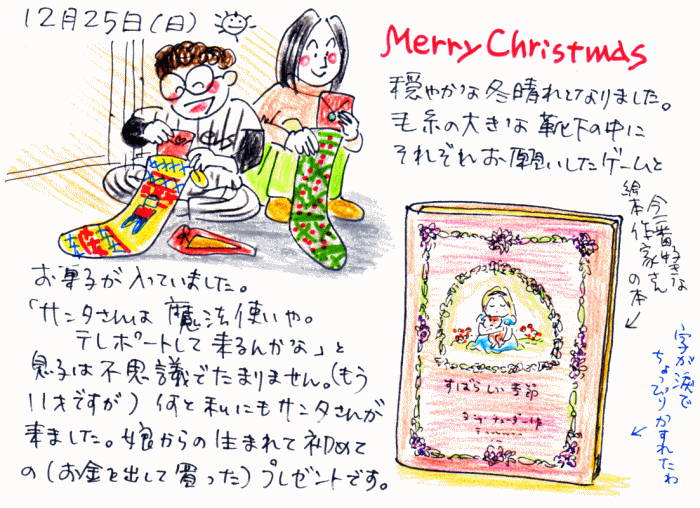 12月25日(日)
Merry Christmas
穏やかな冬晴れとなりました。
毛糸の大きな靴下の中に
それぞれお願いしたゲームと
お菓子が入っていました。
「サンタさんは魔法使いや。
テレポートして来るんかな」と
息子は不思議でたまりません。(もう
11才ですが)何と私にもサンタさんが
来ました。娘からの生まれて初めて
の(お金を出して買った)プレゼントです。
今一番好きな
絵本作家さん
の本
すばらしい季節
ターシャ・テューダー作
字が涙で
ちょっぴりかすれたわ